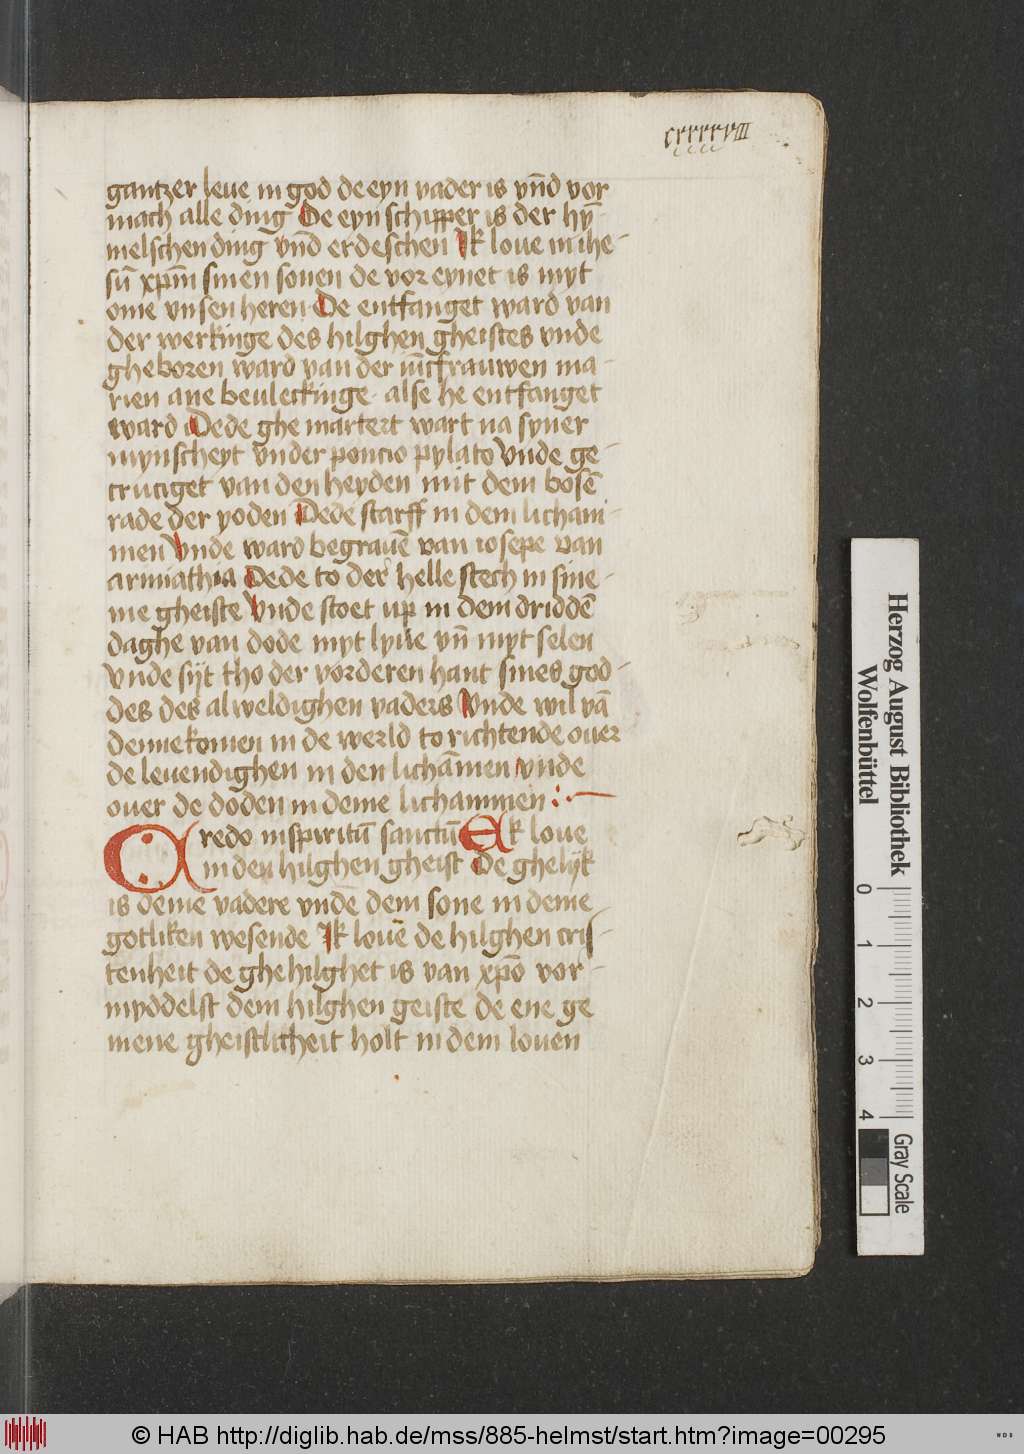 cxxxxxvIII
gantzer leue in god de eyn vader is vn̄d vor
mach alle ding De eyn schipper is der hȳ-
melschen ding vn̄d erdeschen Ik loue in ihe-
sū xp̄m sinen sonen de vor eynet is myt
ome vnsen heren De entfanget ward van
der werkinge des hilghen gheistes vnde
gheboren ward van der iūcfrauwen ma-
rien ane beuleckinge alse he entfanget
ward Dede ghe martert wart na syner
mynscheyt vnder poncio pylato vnde ge-
cruciget van den heyden mit dem bosē
rade der yoden Dede starff in dem licham-
men vnde ward begrauē van iosepe van
arimathia Dede to der helle stech in sine-
me gheiste Vnde stoet up in dem driddē
daghe van dode myt lyue vn̄ myt selen
Vnde sijt tho der vorderen hant sines god-
des des alweldighen vaders Vnde wil vā
denne komen in de werld to richtende ouer
de leuendighen in den lichāmen vnde
ouer de doden in deme lichammen
Credo in spiritū sanctū Ek loue
in den hilghen gheist De ghelijk
is deme vadere vnde dem sone in deme
gotliken wesende Ik louē de hilghen cris-
tenheit de ghehilghet is van xp̄o vor-
myddelst dem hilghen geiste de ene ge
mene gheistlicheit holt in dem louen
Herzog August Bibliothek
Wolfenbüttel
0 1 2 3 4
Gray Scale
© HAB http://diglib.hab.de/mss/885-helmst/start.htm?image=00295